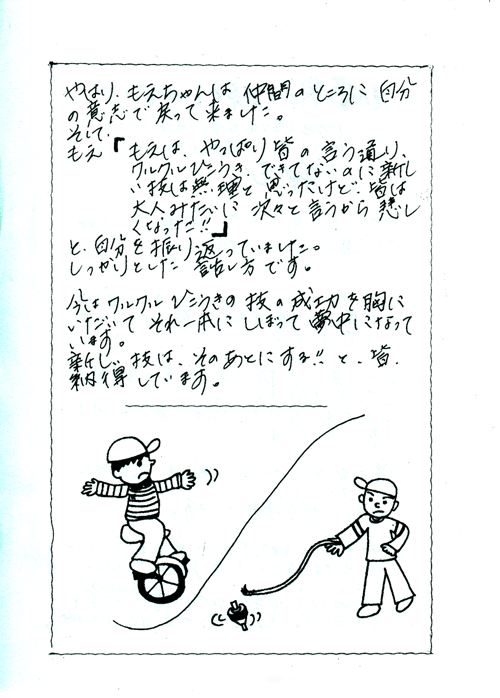 やはり、もえちゃんは 仲間のところに 自分
の意志で戻って来ました。
そして、
もえ「もえは、やっぱり皆の言う通り、
クルクルひこうき、できてないのに新し
い技は無理と思ったけど、皆は
大人みたいに 次々と言うから 悲し
くなった!!」
と、自分を振り返っていました。
しっかりとした 話し方です。
今は クルクルひこうきの技の成功を胸に
いだいて それ一本に しぼって 夢中になって
います。
新しい技は、そのあとにする!! と、皆、
納得しています。